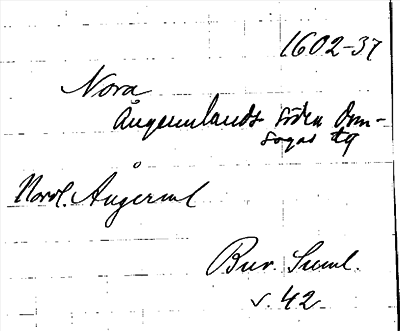 1602-37
Nora
Ångermlands södra dom-
sagas tg
Nordl. Ångerml
Bur. Suml.
s. 42